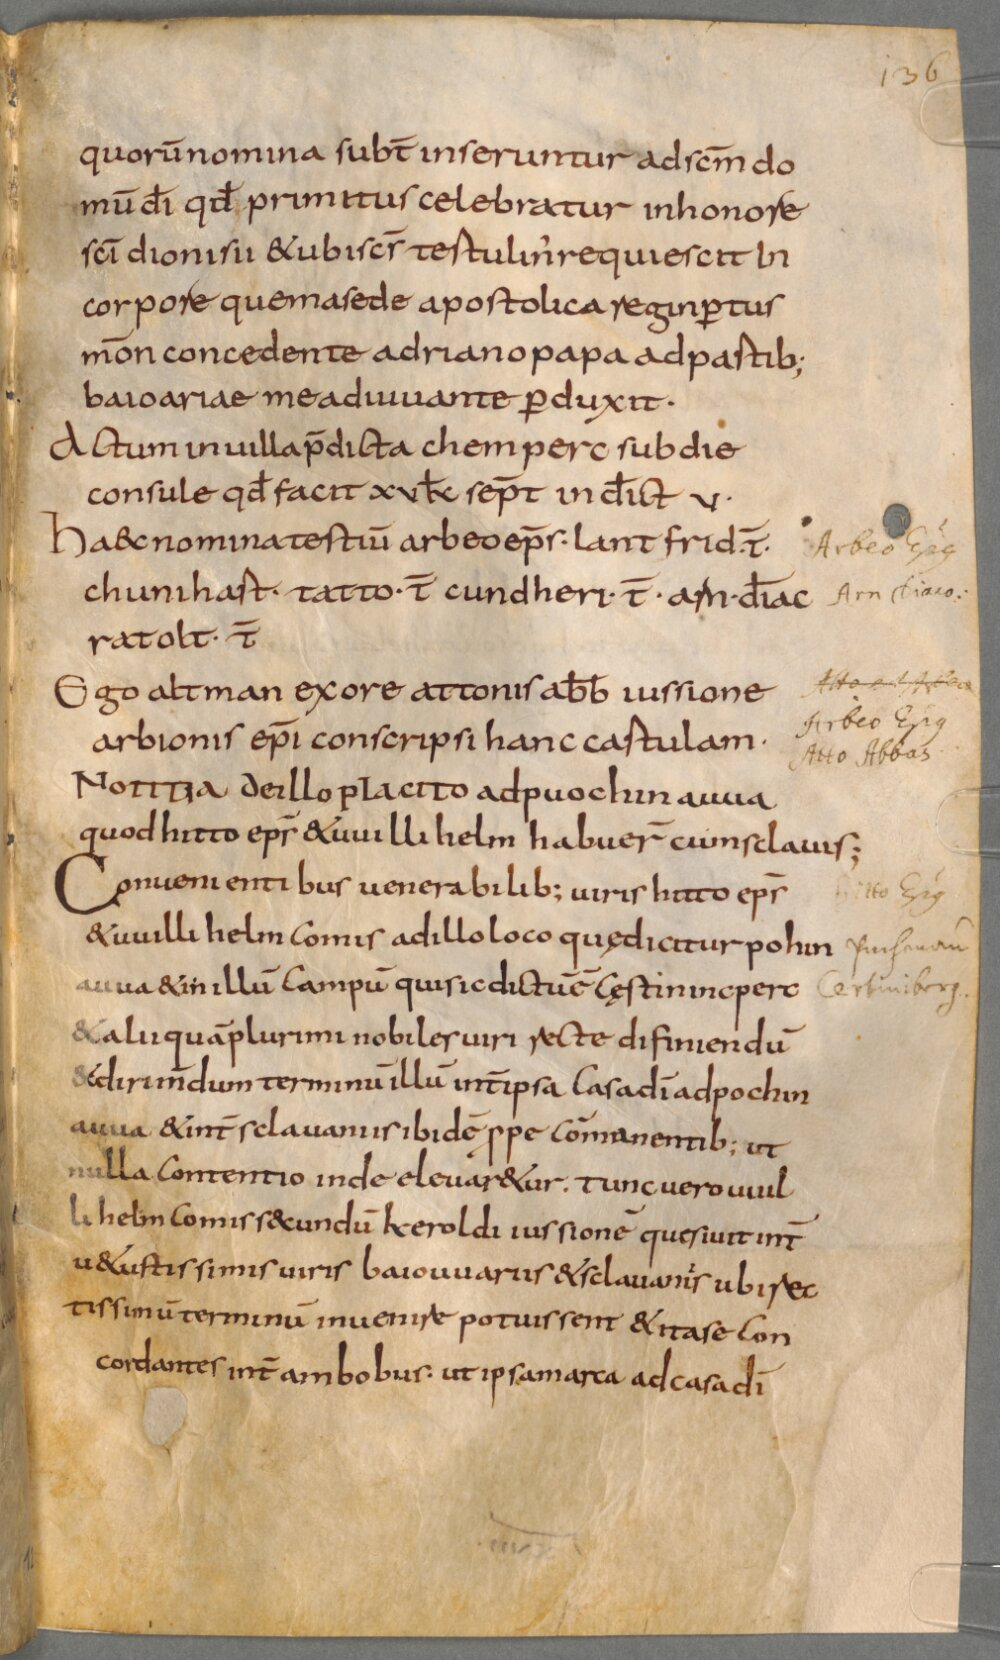 136
quorū nomina subt̄ inseruntur ad scm̄ do
mū dī qd̄ primitus celebratur in honore
scī dionisii & ubi scs̄ testulin' requiescit in
corpore quem a sede apostolica reginꝑtus
mōn concedente adriano papa ad pastib;
baioariae me adiuuante ꝑduxit.
Actum in uilla p̄dicta chemperc sub die
consule qd̄ facit xv kł sept̄ indict̄ v.
Haec nomina testiū arbeo eps̄. lantfrid. t̄.
Arbeo
chunihast. tatto. t̄ cundheri. t̄. arn. diāc
Arn diaco:
ratolt. t̄
Ego altman ex ore attonis abb̄ iussione
Arbeo
arbionis epī conscripsi hanc castulam.
Atto Abbas
Notitia de illo placito ad puochinauua
quod hitto eps̄ & uuillihelm habuer̄ cum sclauis;
Conuenientibus uenerabilib; uiris hitto eps̄
Hitto
& uuillihelm comis ad illo loco quę dicitur pohin
auua & in illū campū qui sic dictū ē cęstinincperc
& alii quā plurimi nobiles uiri recte difiniendū
& dirim̄dum terminū illū int̄ ipsa casa dī ad pochin
auua & int̄ sclauaniis ibidē ꝓpe cōmanentib; ut
nulla contentio inde eleuar&ur. tunc uero uuil
lihelm comis s&cundū keroldi iussionē quesiuit int̄
u&ustissimis uiris baiouuariis & sclauaniis ubi rec
tissimū terminū inuenire potuissent & ita se con
cordantes int̄ ambobus. ut ipsa marca ad casa dī